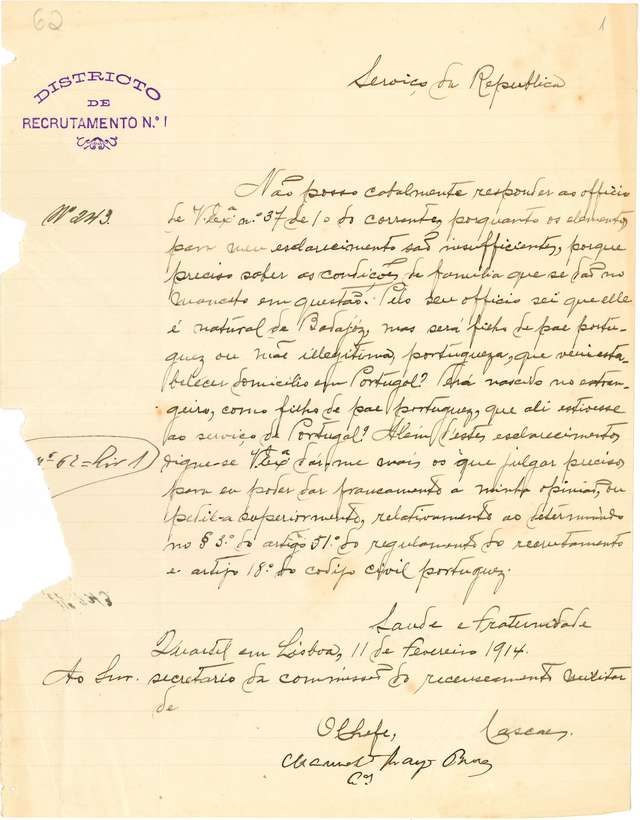 62
1
DISTRICTO
DE
RECRUTAMENTO N.º 1
Serviço da Republica
Nº 243.
Não posso cabalmente responder ao officio
de V. Exª n.º 37 de 10 do corrente, porquanto os elementos
para meu esclarecimento são insufficientes, porque
preciso saber as condições de familia que se dão no
mancebo em questão. Pelo seu officio sei que elle
é natural de Badajóz, mas será filho de pae portu-
guez ou mãe illegitima, portugueza, que veiu esta-
belecer domicilio em Portugal? Terá nascido no estran-
geiro, como filho de pae portuguez, que ali estivesse
ao serviço de Portugal? Alem d'estes esclarecimentos
nº 62 = Liv 1
digne-se V. Exª dár-me mais os que julgar precisos
para eu poder dar francamente a minha opinião, ou
pedil-a superiormente, relativamente ao determinado
no § 3.º do artigo 51.º do regulamento do recrutamento
e artigo 18.º do codigo civil portuguez.
Saude e Fraternidade
Quartel em Lisboa, 11 de Fevereiro 1914.
Ao Snr. secretario da commissão do recenseamento militar
de Cascaes.
O Chefe,
Manuel